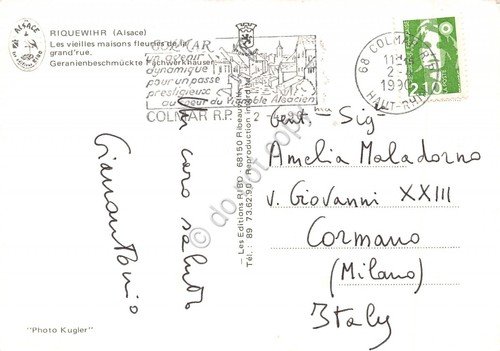 ALSACE
RIQUEWIHR (Alsace)
Les vieilles maisons fleuries de la
grand'rue.
Geranienbeschmückte Fachwerkhäuser.
COLMAR
un avenir
dynamique
pour un passé
prestigieux
au coeur du Vignoble Alsacien
COLMAR R.P.
68 COLMAR R.P.
11H
2-
1990
HAUT-RHIN
2,10
Un caro saluto
Gianantonio
— Les Editions RIBO - 68150 Ribeauvillé
Tél.: 89 73.62.90 - Reproduction interdite
do not copy
Gent. Sig-
Amelia Maladorno
v. Giovanni XXIII
Cormano
(Milano)
Italy
"Photo Kugler"